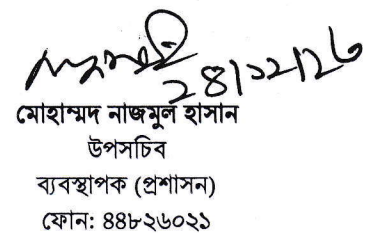 ২৪/১২/২৩
মোহাম্মদ নাজমুল হাসান
উপসচিব
ব্যবস্থাপক (প্রশাসন)
ফোন: ৪৪৮২৬০২১